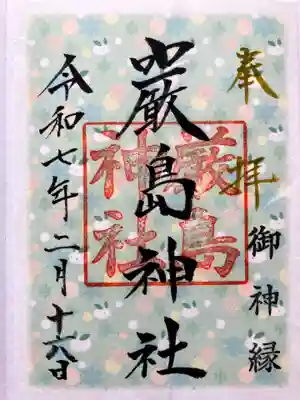 奉拝
御神縁
巖島神社
厳島神社
令和七年二月十六日